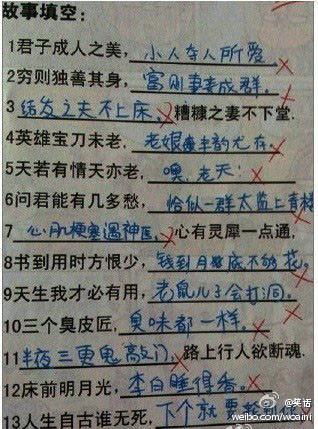 故事填空:
1君子成人之美, 小人夺人所爱.
2穷则独善其身, 富则妻妾成群.
3 结发之夫不上床, 糟糠之妻不下堂.
4英雄宝刀未老, 老娘丰韵尤存.
5天若有情天亦老, 噢,老天!
6问君能有几多愁, 恰似一群太监上青楼
7 心肌梗塞遇神医, 心有灵犀一点通,
8书到用时方恨少, 钱到月底不够花.
9天生我才必有用, 老鼠儿子会打洞.
10三个臭皮匠, 臭味都一样.
11半夜三更鬼敲门, 路上行人欲断魂.
12床前明月光, 李白睡得香.
13人生自古谁无死, 下个就
@笑话
weibo.com/woaini